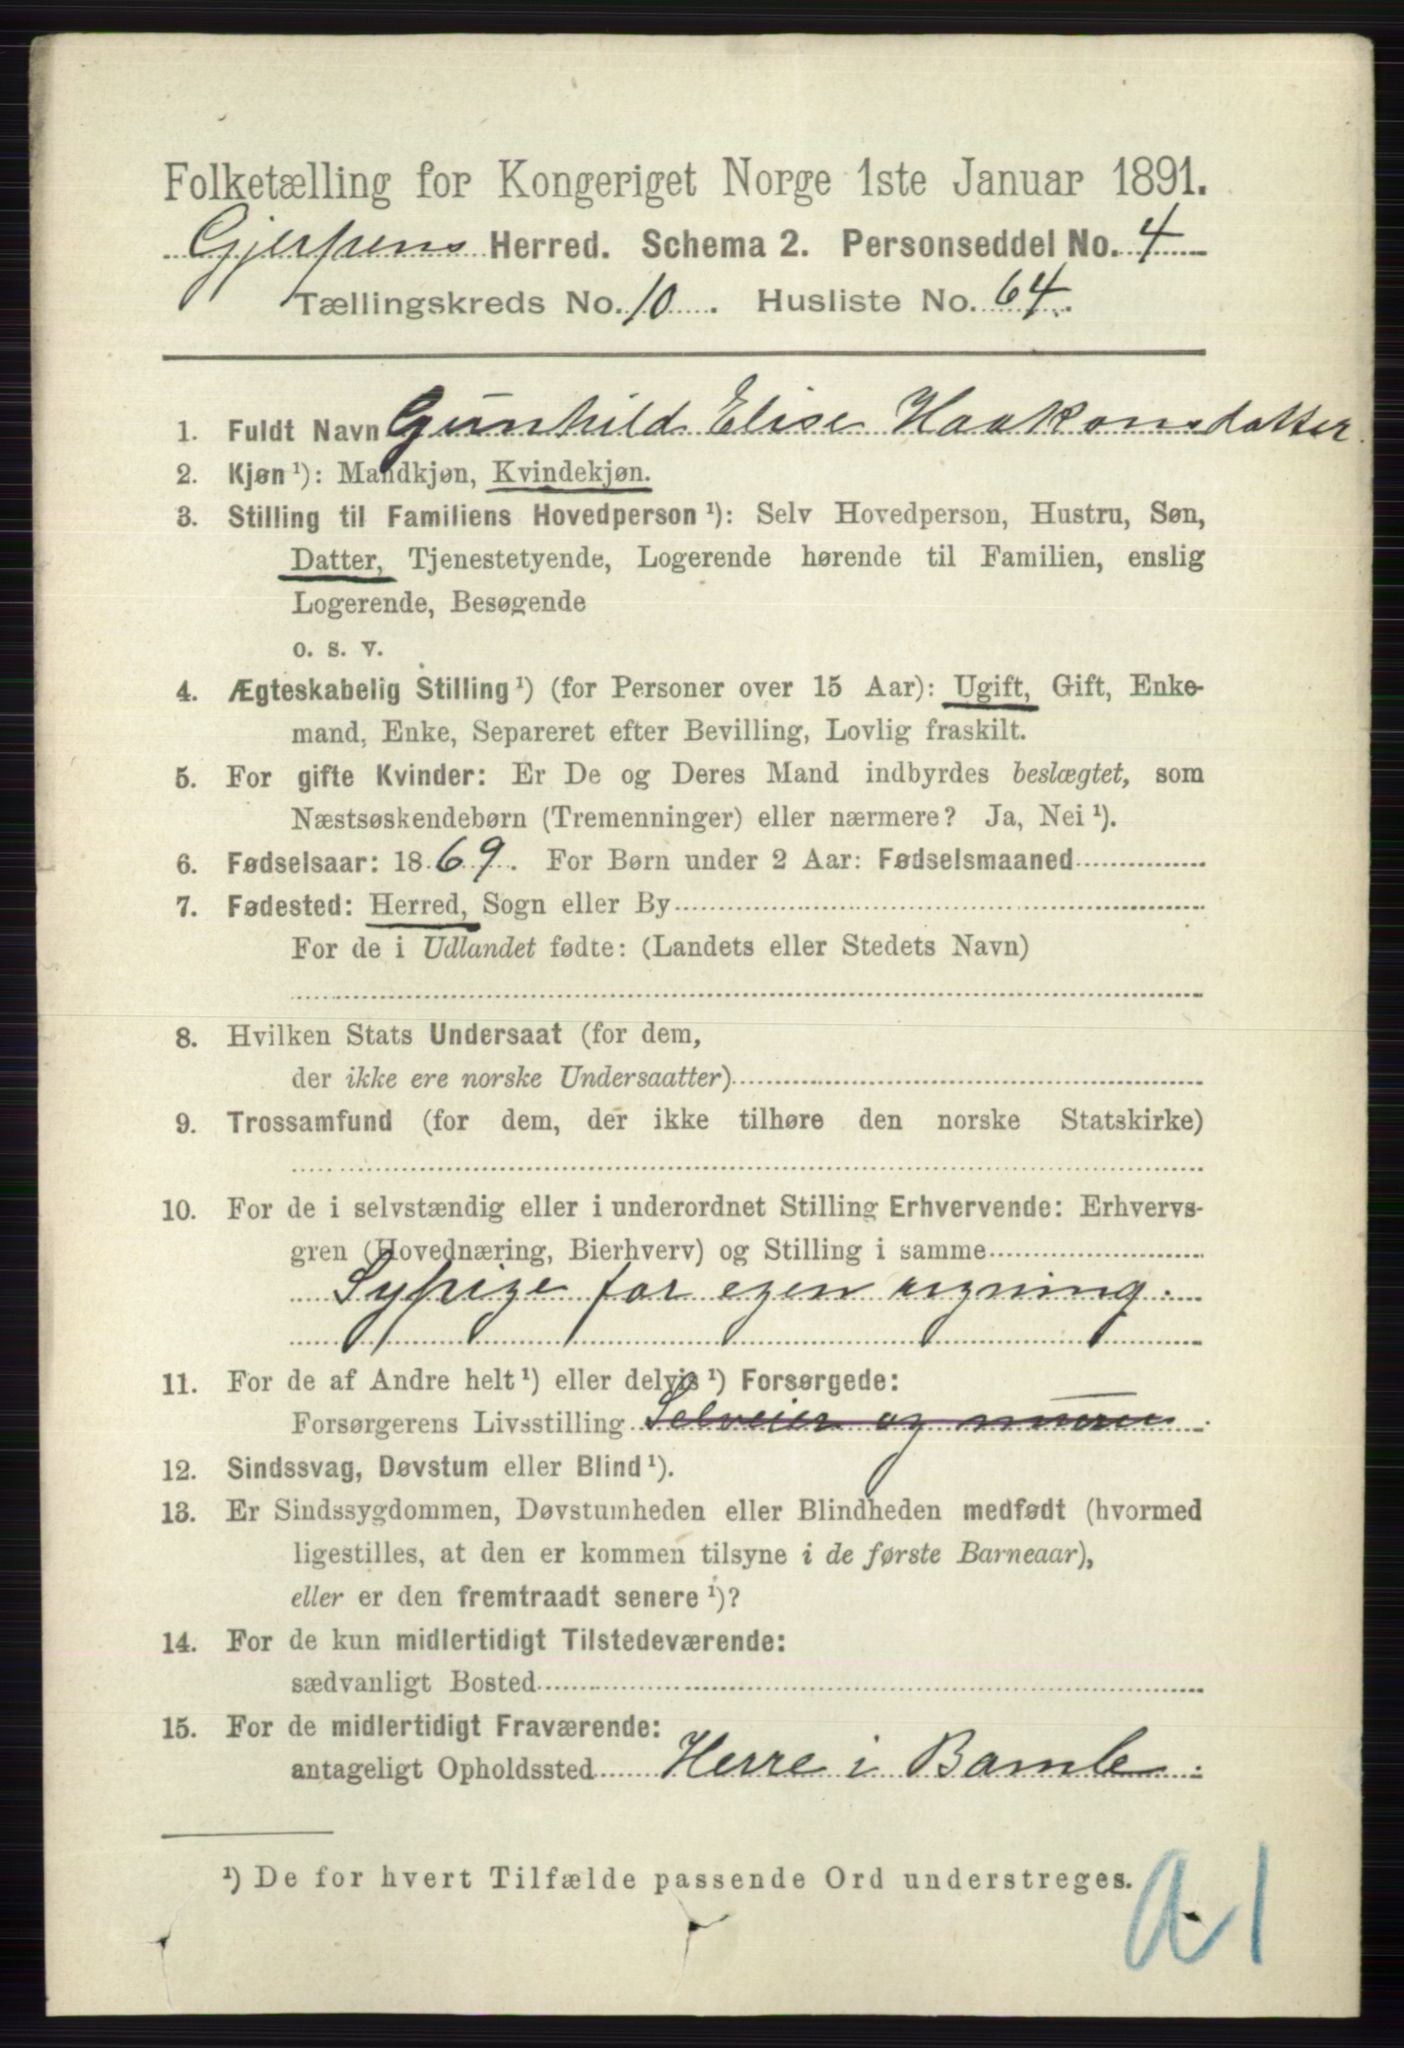 Folketælling for Kongeriget Norge 1ste Januar 1891.
Gjerpens Herred. Schema 2. Personseddel No. 4
Tællingskreds No. 10. Husliste No. 64.
1. Fuldt Navn Gunhild Elise Haakonsdatter
2. Kjøn ¹): Mandkjøn, Kvindekjøn.
3. Stilling til Familiens Hovedperson ¹): Selv Hovedperson, Hustru, Søn,
Datter, Tjenestetyende, Logerende hørende til Familien, enslig
Logerende, Besøgende
o. s. v.
4. Ægteskabelig Stilling ¹) (for Personer over 15 Aar): Ugift, Gift, Enke-
mand, Enke, Separeret efter Bevilling, Lovlig fraskilt.
5. For gifte Kvinder: Er De og Deres Mand indbyrdes beslægtet, som
Næstsøskendebørn (Tremenninger) eller nærmere? Ja, Nei ¹).
6. Fødselsaar: 1869. For Børn under 2 Aar: Fødselsmaaned
7. Fødested: Herred, Sogn eller By
For de i Udlandet fødte: (Landets eller Stedets Navn)
8. Hvilken Stats Undersaat (for dem,
der ikke ere norske Undersaatter)
9. Trossamfund (for dem, der ikke tilhøre den norske Statskirke)
10. For de i selvstændig eller i underordnet Stilling Erhvervende: Erhvervs-
gren (Hovednæring, Bierhverv) og Stilling i samme
Sypige for egen regning.
11. For de af Andre helt ¹) eller delvis ¹) Forsørgede:
Forsørgerens Livsstilling Selveier og murer
12. Sindssvag, Døvstum eller Blind ¹).
13. Er Sindssygdommen, Døvstumheden eller Blindheden medfødt (hvormed
ligestilles, at den er kommen tilsyne i de første Barneaar),
eller er den fremtraadt senere ¹)?
14. For de kun midlertidigt Tilstedeværende:
sædvanligt Bosted
15. For de midlertidigt Fraværende:
antageligt Opholdssted Herre i Bamle.
¹) De for hvert Tilfælde passende Ord understreges.
a 1